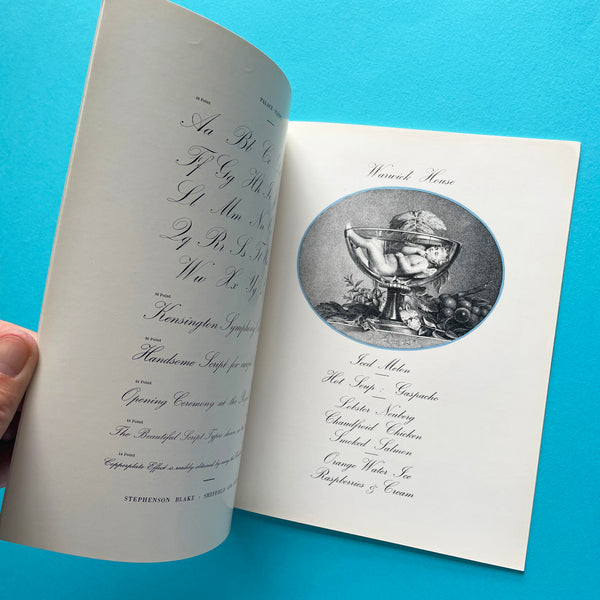 PALACE
48 Point
Aa Bb Cc
Ff Gg Hh
Ll Mm Nn
Qq Rr Ss
Ww Xx Yy
36 Point
Kensington Symphony
30 Point
Handsome Script for
24 Point
Opening Ceremony at the
18 Point
The Beautiful Script Types shown
14 Point
Copperplate Effect is readily obtained by using the
STEPHENSON BLAKE : SHEFFIELD
Warwick House
Iced Melon
Hot Soup : Gaspacho
Lobster Neuberg
Chaudfroid Chicken
Smoked Salmon
Orange Water Ice
Raspberries & Cream